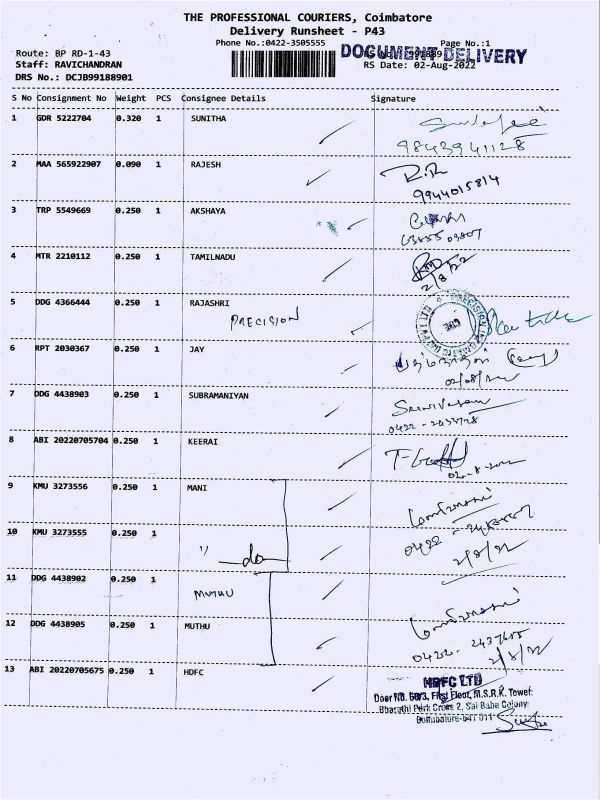 THE PROFESSIONAL COURIERS, Coimbatore
Delivery Runsheet - P43
Phone No.:0422-3505555
Page No.:1
DOCUMENT DELIVERY
Route: BP RD-1-43
Staff: RAVICHANDRAN
RS Date: 02-Aug-2022
DRS No.: DCJB99188901
S No Consignment No Weight PCS Consignee Details Signature
1 GDR 5222704 0.320 1 SUNITHA
9843941128
2 MAA 565922907 0.090 1 RAJESH
R.R
9944015814
3 TRP 5549669 0.250 1 AKSHAYA
4 MTR 2210112 0.250 1 TAMILNADU
2/8/22
5 DDG 4366444 0.250 1 RAJASHRI
PRECISION
6 RPT 2030367 0.250 1 JAY
02/08/22
7 DDG 4438903 0.250 1 SUBRAMANIYAN
Srinivasan
8 ABI 20220705704 0.250 1 KEERAI
9 KMU 3273556 0.250 1 MANI
10 KMU 3273555 0.250 1
" do
2/8/22
11 DDG 4438902 0.250 1
MUTHU
12 DDG 4438905 0.250 1 MUTHU
2/8/22
13 ABI 20220705675 0.250 1 HDFC
HDFC LTD
Door No. 50/3, First Floor, M.S.R.K. Tower
Bharathi Park Cross 2, Sai Baba Colony
Coimbatore-641 011